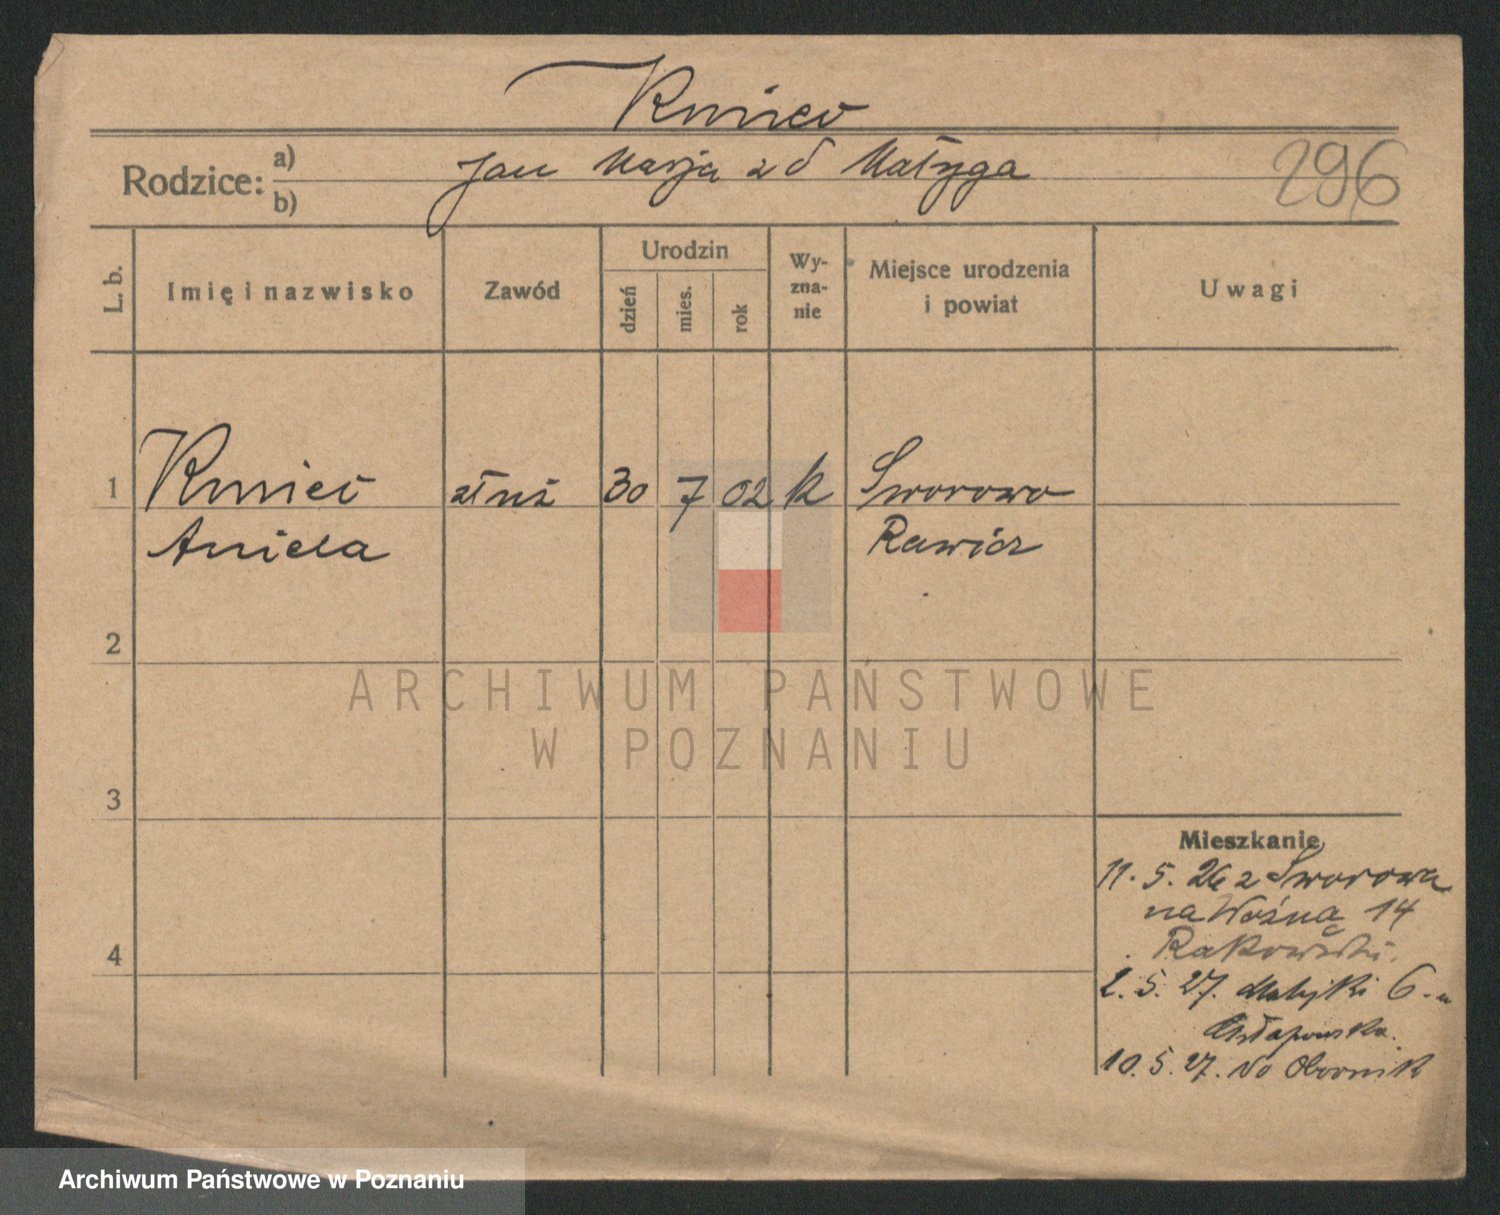 Kmieć
Rodzice: a)
b)
Jan Marja z d Małyga
296
L. b.
Imię i nazwisko
Zawód
Urodzin
dzień
mies.
rok
Wy-
zna-
nie
Miejsce urodzenia
i powiat
Uwagi
1
Kmieć
Aniela
służ
30 7 02 k
Sworowo
Rawicz
2
3
4
Mieszkanie
11. 5. 26 z Sworowa
na Woźną 14
Rakowski.
2. 5. 27. Matejki 6. u
10. 5. 27. do Obornik
ARCHIWUM PAŃSTWOWE
W POZNANIU
Archiwum Państwowe w Poznaniu